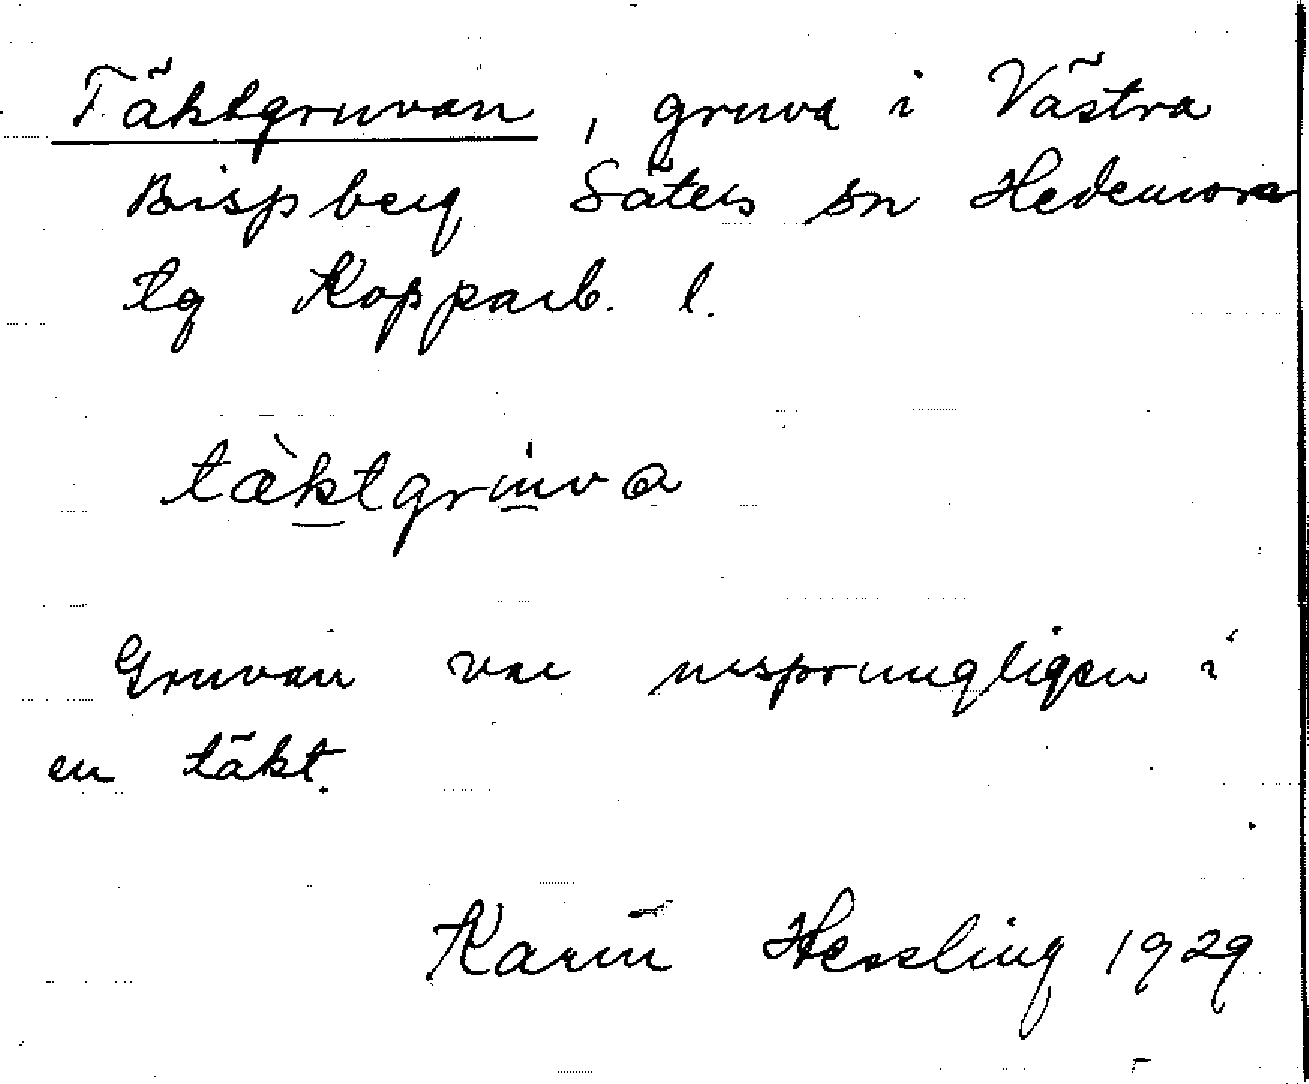 Täktgruvan, gruva i Västra
Bispberg Säters sn Hedemora
tg Kopparb. l.
tæ̀ktgruva
Gruvan var ursprungligen i
en täkt.
Karin Hessling 1929